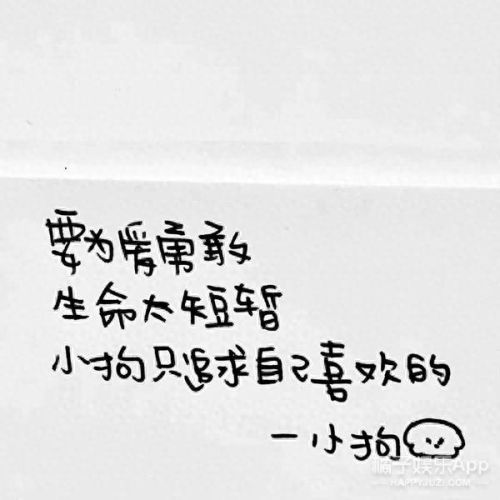 要为爱勇敢
生命太短暂
小狗只追求自己喜欢的
一小狗
橘子娱乐App
HAPPYJUZI.COM